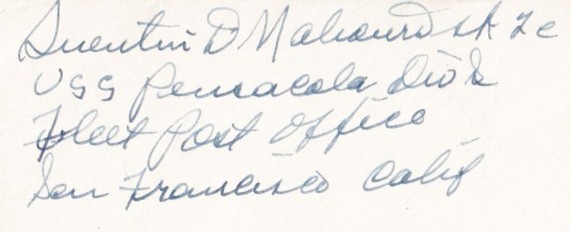 Quentin D Mahourd SK 2c
USS Pensacola Div S
Fleet Post Office
San Francisco Calif